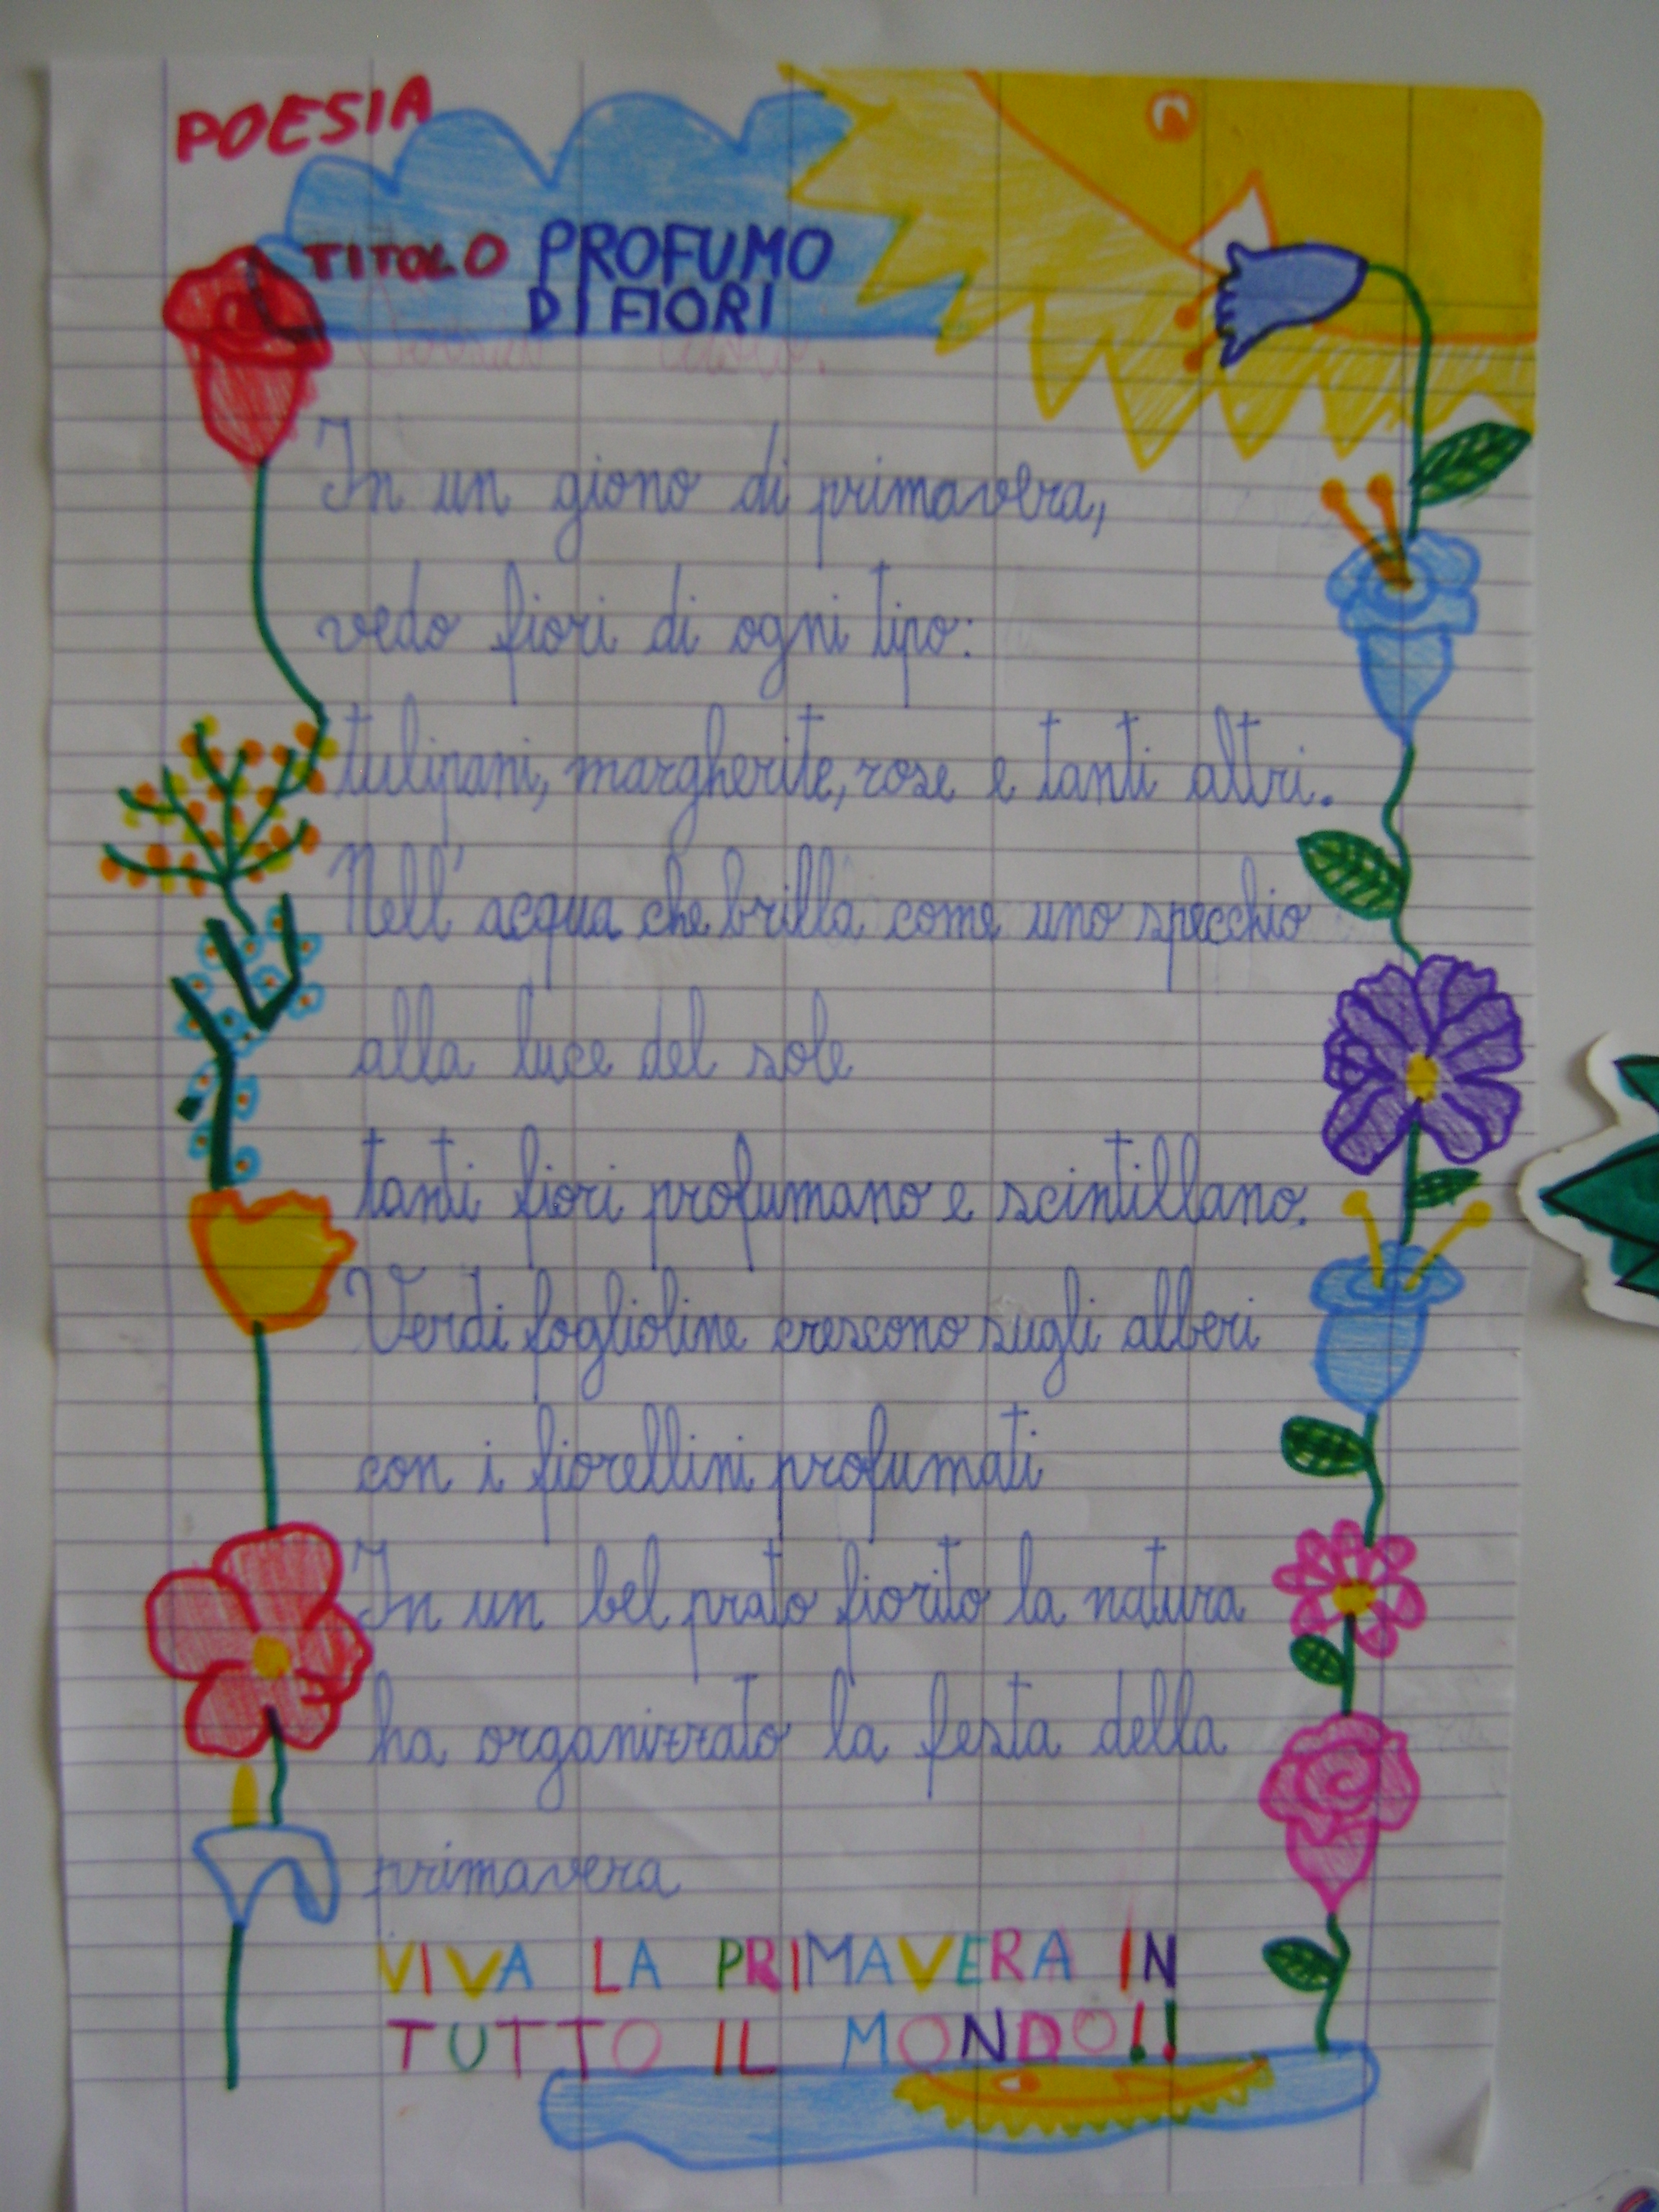 POESIA
TITOLO PROFUMO
DI FIORI
In un giono di primavera,
vedo fiori di ogni tipo:
tulipani, margherite, rose e tanti altri.
Nell'acqua che brilla come uno specchio
alla luce del sole
tanti fiori profumano e scintillano.
Verdi foglioline crescono sugli alberi
con i fiorellini profumati
In un bel prato fiorito la natura
ha organizzato la festa della
primavera
VIVA LA PRIMAVERA IN
TUTTO IL MONDO!!